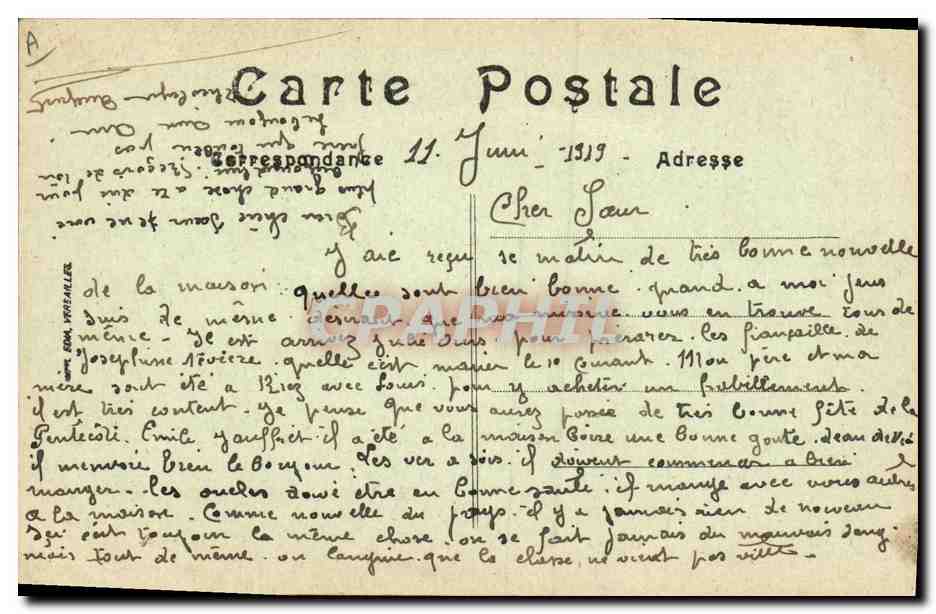 A
Carte Postale
Correspondance 11 Juin 1919. Adresse
Cher Sœur
J aie reçu se matin de très bonne nouvelle
de la maison quelles sont bien bonne quand a moi jens
suis de même desirant que ma vous en trouve tous de
même. Je est arrivez Julie pour préparer les fiançaille de
Josephine quelle c'est marier le 10 courant. Mon père et ma
mère sont été a Riez avec Louis pour y acheter un habillement.
il est très content. Je pense que vous aurez passée de très bonne fête de la
Pentecôti. Emile Jauffret il a été a la maison boire une bonne goute d'eau de vie
il menvoie bien le bonjour. Les ver a sois il doivent commencer a bien
manger. les oncles doive être en bonne santé. il mange avec vous autres
a la maison. Comme nouvelle du pays il y a jamais rien de nouveau
sai c'est toujour la même chose on se fait jamais du mauvais sang
mais tout de même on languie que la classe ne vient pas vitte.
Bien chère sœur je ne voie
plus grand chose a te dire pour
aujourd'hui
pas
le bonjour aux
IMPR. EDIA, VERSAILLES
CRAPHIL